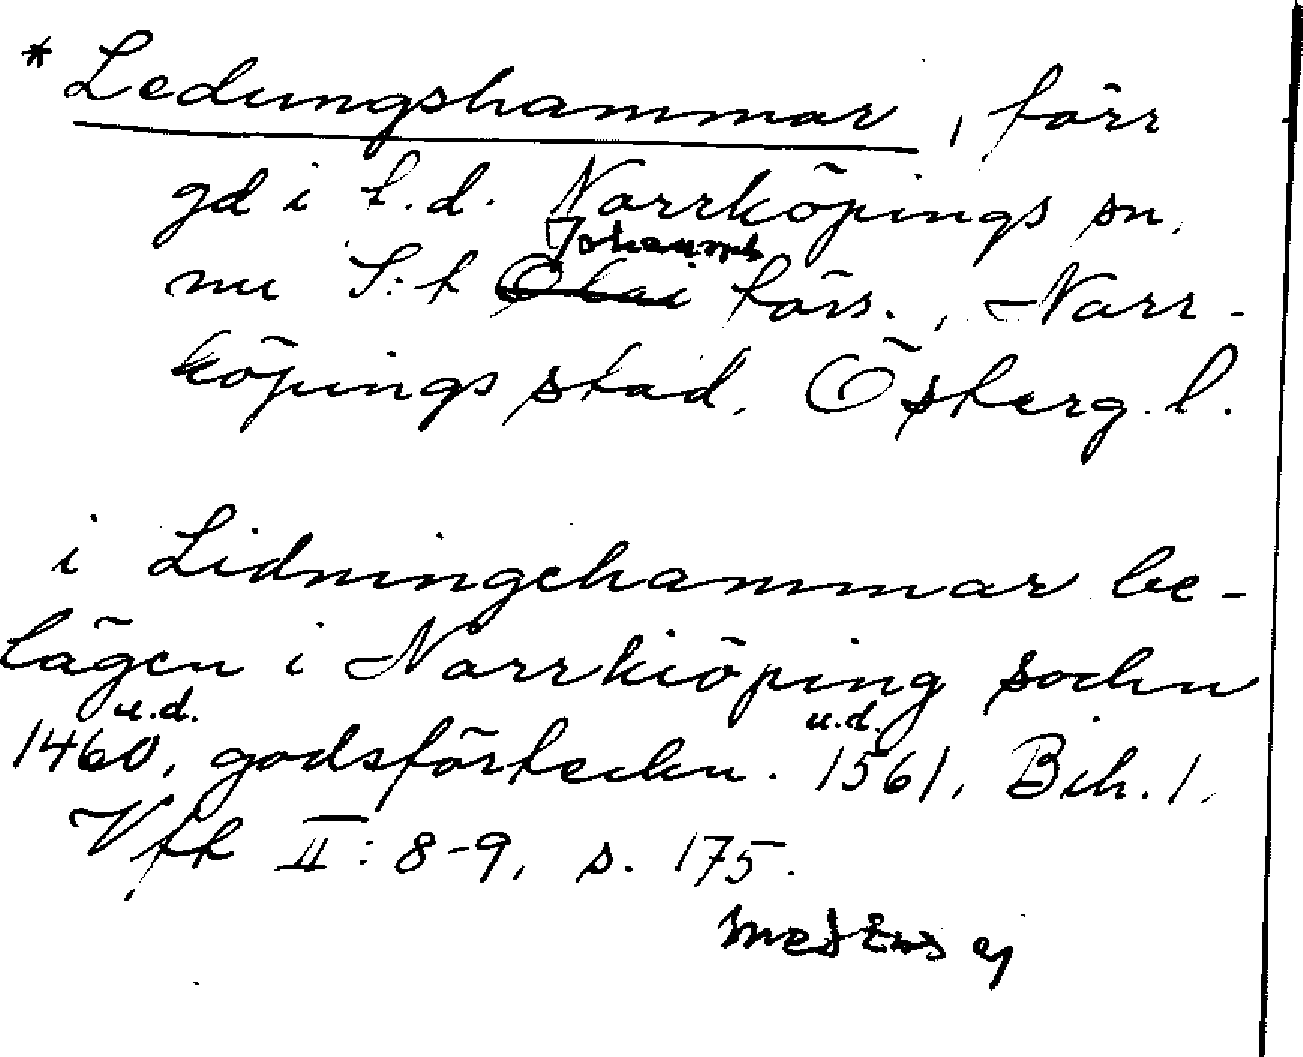 * Ledungshammar, förr
gd i f.d. Norrköpings sn,
nu S:t Johannes förs., Norr-
köpings stad, Österg. l.
i Lidningehammar be-
lägen i Norrkiöping sochn
1460 u.d., godsförteckn. 1561 u.d., Bih. 1,
Vfk II: 8-9, s. 175.
ej